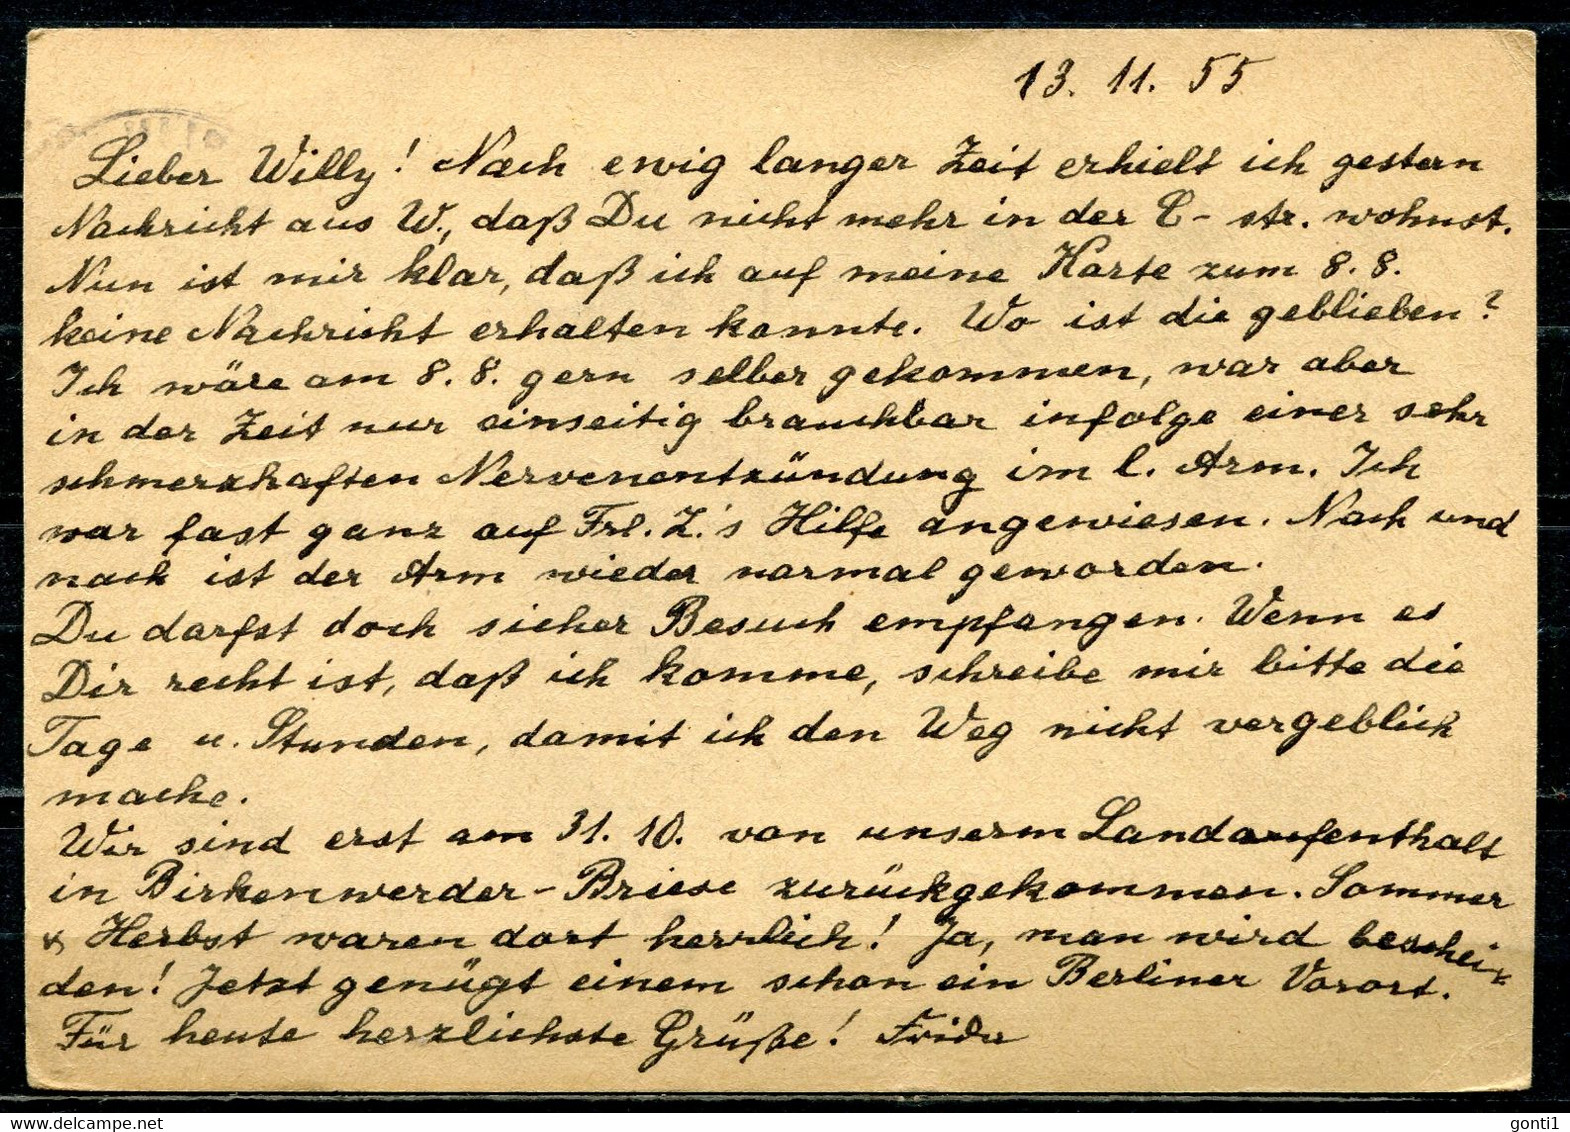 13. 11. 55
Lieber Willy! Nach ewig langer Zeit erhielt ich gestern
Nachricht aus W., daß Du nicht mehr in der C- str. wohnst.
Nun ist mir klar, daß ich auf meine Karte zum 8. 8.
keine Nachricht erhalten konnte. Wo ist die geblieben?
Ich wäre am 8. 8. gern selber gekommen, war aber
in der Zeit nur einseitig brauchbar infolge einer sehr
schmerzhaften Nervenentzündung im l. Arm. Ich
war fast ganz auf Frl. Z.'s Hilfe angewiesen. Nach und
nach ist der Arm wieder normal geworden.
Du darfst doch sicher Besuch empfangen. Wenn es
Dir recht ist, daß ich komme, schreibe mir bitte die
Tage u. Stunden, damit ich den Weg nicht vergeblich
mache.
Wir sind erst am 31. 10. von unserm Landaufenthalt
in Birkenwerder-Briese zurückgekommen. Sommer
& Herbst waren dort herrlich! Ja, man wird beschei-
den! Jetzt genügt einem schon ein Berliner Vorort.
Für heute herzlichste Grüße! Frida
gonti1